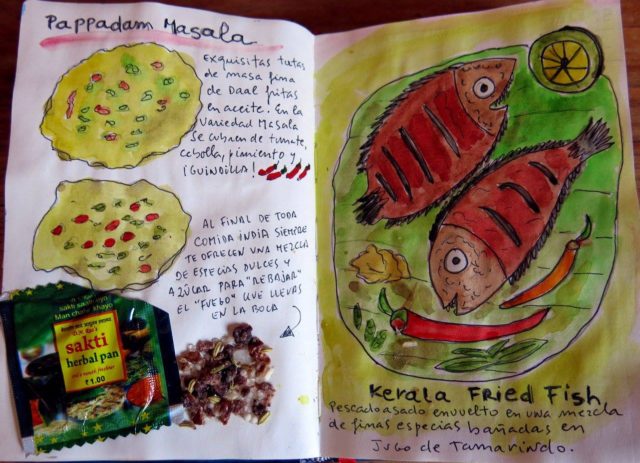 Pappadam Masala
Exquisitas tutas
de masa fina
de Daal fritas
en aceite. En la
variedad Masala
se cubren de tomate,
cebolla, pimiento y
¡GUINDILLA!
AL FINAL DE TODA
COMIDA INDIA SIEMPRE
TE OFRECEN UNA MEZCLA
DE ESPECIAS DULCES Y
AZÚCAR PARA "REBAJAR"
EL "FUEGO" QUE LLEVAS
EN LA BOCA
sakti
herbal pan
₹1.00
Kerala Fried Fish
Pescado asado envuelto en una mezcla
de finas especias bañadas en
Jugo de Tamarindo.